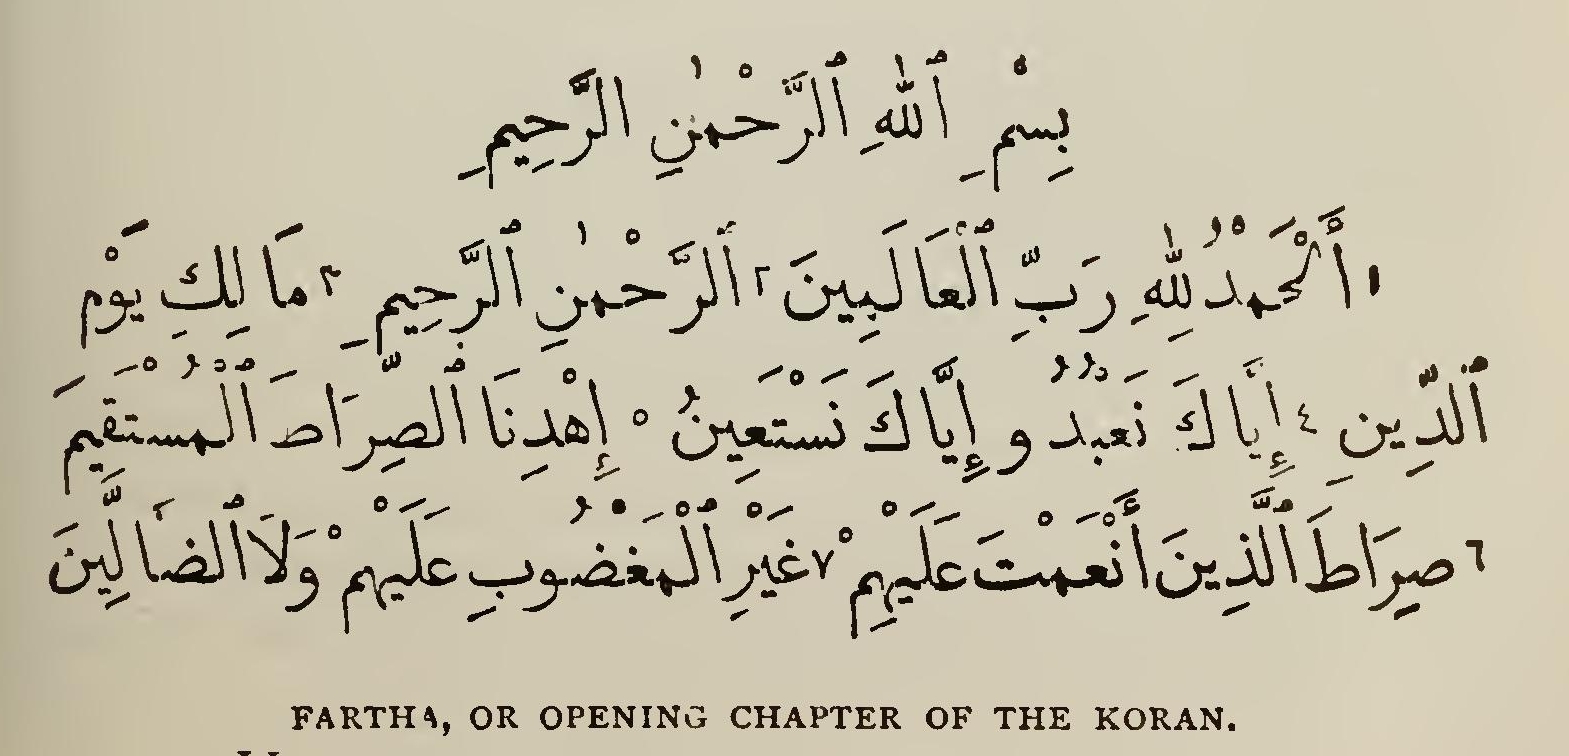 بِسْمِ ٱللهِ ٱلرَّحْمٰنِ الرَّحِيمِ
١ أَلْحَمْدُ لِلّٰهِ رَبِّ ٱلْعَالَمِينَ ٢ ٱلرَّحْمٰنِ ٱلرَّحِيمِ ٣ مَا لِكِ يَوْمَ
ٱلدِّينِ ٤ إِيَّا كَ نَعْبُدُ و إِيَّا كَ نَسْتَعِينُ ٥ إِهْدِنَا ٱلصِّرَاطَ ٱلْمُسْتَقِيمَ
٦ صِرَاطَ ٱلَّذِينَ أَنْعَمْتَ عَلَيْهِمْ ٧ غَيْرِ ٱلْمَغْضُوبِ عَلَيْهِمْ وَلَا ٱلضَالِّينَ
FARTHA, OR OPENING CHAPTER OF THE KORAN.